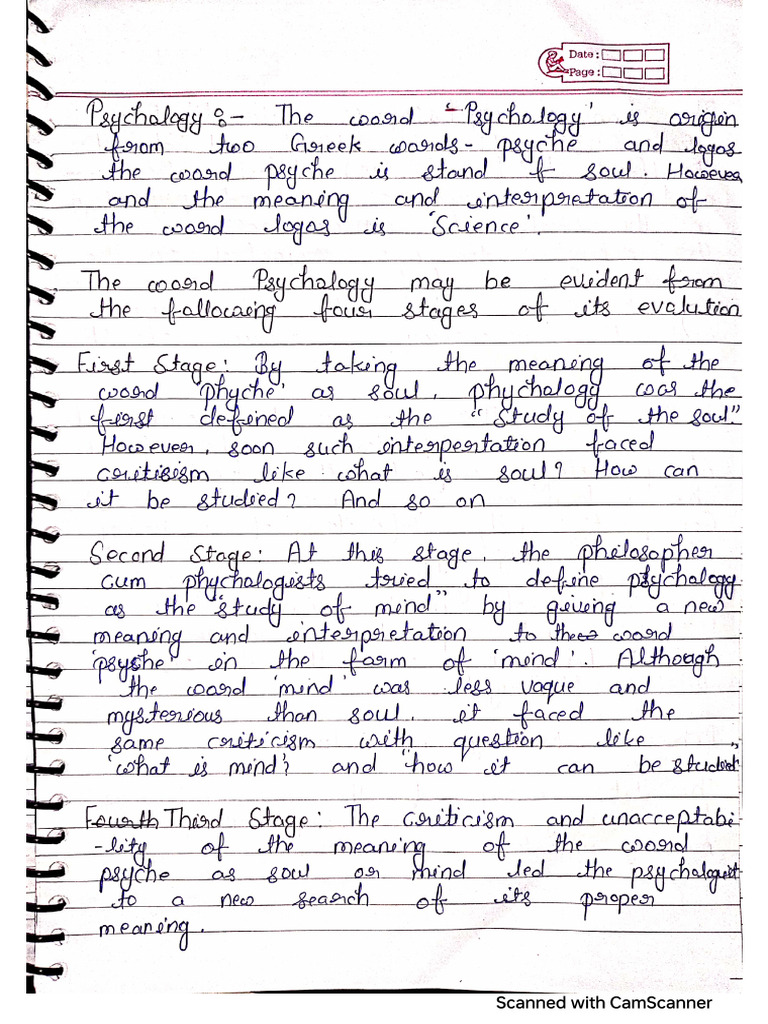 Date :
Page :
Psychology :- The word 'Psychology' is origin
from two Greek words - psyche and logos
the word psyche is stand of soul. However
and the meaning and interpretation of
the word logos is 'Science'.
The word Psychology may be evident from
the following four stages of its evalution
First Stage: By taking the meaning of the
word 'phyche' as soul, phychology was the
first defined as the "Study of the soul."
However, soon such interpertation faced
criticism like what is soul? How can
it be studied? And so on
Second Stage: At this stage, the philosopher
cum phychologists tried to define psychology
as the "study of mind" by giving a new
meaning and interpretation to the word
'psyche' in the farm of 'mind'. Although
the word 'mind' was less vague and
mysterious than soul, it faced the
same criticism with question like
'what is mind'? and 'how it can be studied"
Fourth Third Stage: The criticism and unacceptabi-
-lity of the meaning of the word
psyche as soul or mind led the psychologist
to a new search of its proper
meaning.
Scanned with CamScanner